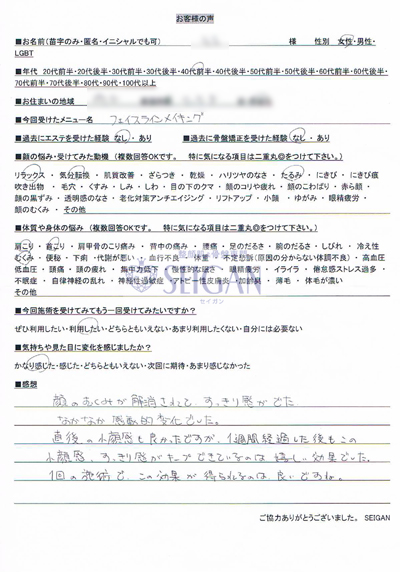 お客様の声
■お名前(苗字のみ・匿名・イニシャルでも可) 様 性別 女性・男性・
LGBT
■年代 20代前半・20代後半・30代前半・30代後半・40代前半・40代後半・50代前半・50代後半・60代前半・60代後半・
70代前半・70代後半・80代・90代・100代以上
■お住まいの地域
■今回受けたメニュー名 フェイスラインメイキング
■過去にエステを受けた経験 なし・あり ■過去に骨盤矯正を受けた経験 なし・あり
■顔の悩み・受けてみた動機 (複数回答OKです。 特に気になる項目は二重丸◎をつけて下さい。)
リラックス ・ 気分転換 ・ 肌質改善 ・ ざらつき ・ 乾燥 ・ ハリツヤのなさ ・ たるみ ・ にきび ・ にきび痕
吹き出物 ・ 毛穴 ・ くすみ ・ しみ ・ しわ ・ 目の下のクマ ・ 顔のコリや疲れ ・ 顔のこわばり ・ 赤ら顔 ・
顔の黒ずみ ・ 透明感のなさ ・ 老化対策アンチエイジング ・ リフトアップ ・ 小顔 ・ ゆがみ ・ 眼精疲労 ・
顔のむくみ ・ その他
■体質や身体の悩み (複数回答OKです。 特に気になる項目は二重丸◎をつけて下さい。)
肩こり ・ 首こり ・ 肩甲骨のこり痛み ・ 背中の痛み ・ 腰痛 ・ 足のだるさ ・ 腕のだるさ ・ しびれ ・ 冷え性
むくみ ・ 便秘 ・ 下痢 ・ 代謝が悪い ・ 血行不良 ・ 体重 ・ 不定愁訴(原因の分からない体調不良) ・ 高血圧
低血圧 ・ 頭痛 ・ 頭の疲れ ・ 集中力低下 ・ 慢性的な眠さ ・ 眼精疲労 ・ イライラ ・ 倦怠感ストレス過多 ・
不眠症 ・ 自律神経の乱れ ・ 神経性過敏症 ・ アトピー性皮膚炎 ・ 加齢臭 ・ 薄毛 ・ 体毛が濃い
その他
SEIGAN
セイガン
■今回施術を受けてみてもう一回受けてみたいですか?
ぜひ利用したい・利用したい・どちらともいえない・あまり利用したくない・自分には必要ない
■気持ちや見た目に変化を感じましたか?
かなり感じた・感じた・どちらともいえない・次回に期待・あまり感じなかった
■感想
顔のむくみが解消されて、すっきり感がでた
なかなか感動的変化でした。
直後の小顔感も良かったですが、1週間経過した後もこの
小顔感、すっきり感がキープできているのは嬉しい効果でした。
1回の施術で、この効果が得られるのは良いですね。
ご協力ありがとうございました。 SEIGAN